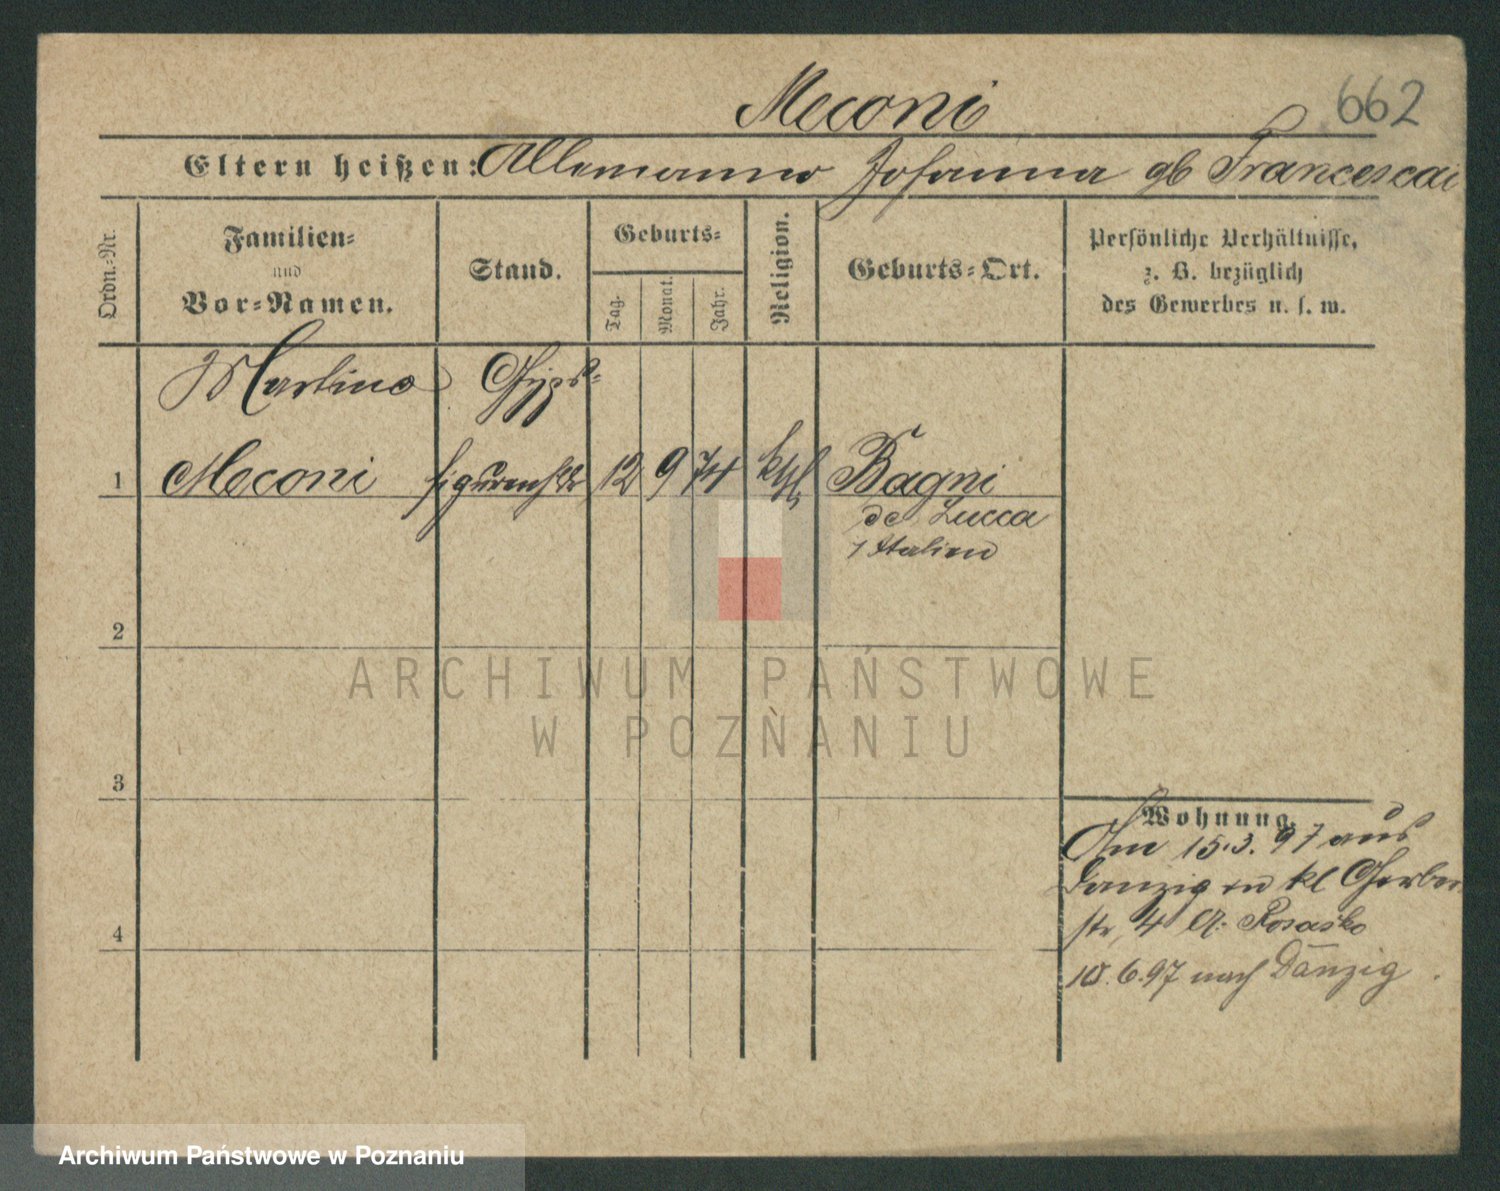 Meconi
662
Eltern heißen: Allemanno Johanna gb Francescai
Ordn.-Nr.
Familien-
und
Vor-Namen.
Stand.
Geburts-
Tag.
Monat.
Jahr.
Religion.
Geburts-Ort.
Persönliche Verhältnisse,
z. B. bezüglich
des Gewerbes u. s. w.
Martino
Gyps-
1 Meconi 12 9 74 kth Bagni
de Lucca
Italien
2
ARCHIWUM PAŃSTWOWE
W POZNANIU
3
Wohnung.
Am 15.3.97 aus
Danzig in kl Gerber
str. 4 b: Kosasko
4
10.6.97 nach Danzig.
Archiwum Państwowe w Poznaniu